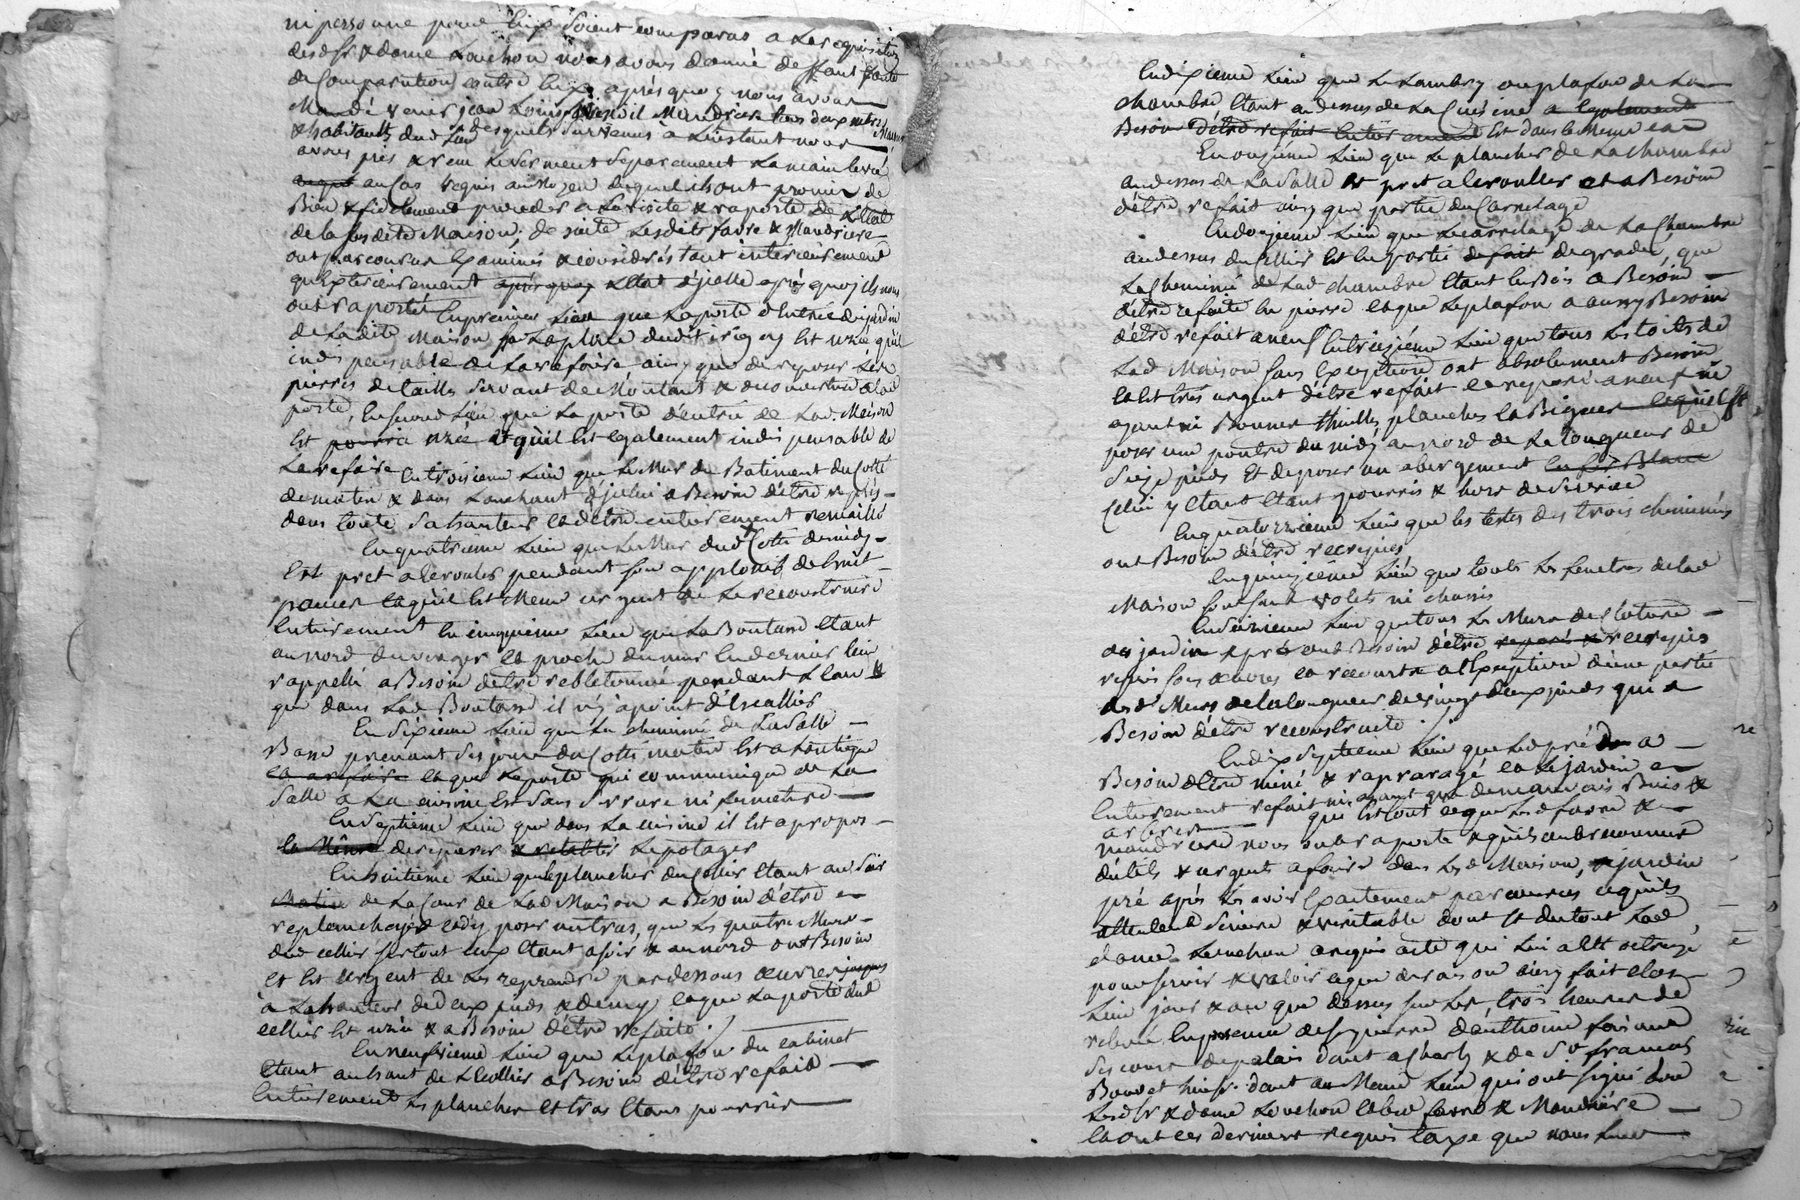 ni personne pour eux soient comparus a la requisition
desd. Sr & dame Louchon nous avons donné deffaut faute
de Comparution contre eux après quoy nous avons
Mandé venir jean Louis favre et Mandrier tous deux
& habitants dud. lieu lesquels survenus à l'instant nous
avons pris & reçu le serment separement la main levée
au Cas requis au moyen duquel ils ont promis de
Bien & fidelement proceder a la visite & raporte de l'état
de la susdite Maison, de suite lesdits favre & Mandrier
ont parcourus Examinés & considerés tant interieurement
qu'Exterieurement l'etat d'jcelle après quoj ils nous
ont raporté En premier lieu que la porte d'Entrée du jardin
de la dite Maison sur la place dudit est uzée qu'il
indispensable de la refaire ainsy que de reposer les
pierres de tailles servant de Montant & de couverture a lad
porte, En second lieu que la porte d'entrée de lad. Maison
Est pourria uzée et qu'il Est egalement indispensable de
La refaire En troisieme lieu que le Mur du Batiment du Cotté
de matin & dans l'anchant d'jcelui a Besoin d'être repris
dans toute sa hauteur et d'etre entierement remaillé
En quatrieme lieu que le Mur dud Cotté de midy
Est pret a s'ecrouler pendant son applomb de huit
pouces et qu'il Est Meme urgent de le reconstruire
Entierement En cinquieme lieu que la Boutasse Etant
au nord du verger et proche du mur En dernier lieu
rappellé a Besoin d'etre rebletonnée pendant l'eau &
que dans lad Boutasse il n'y a point d'Escallier
En Sixieme lieu que la cheminée de la Salle
Basse prenant ses jours du Cotté matin Est a l'antique
et a refaire et que la porte qui communique de la
Salle a la cuisine Est sans Serrure ni fermeture
En Septieme lieu que dans la cuisine il Est a propos
de reparer & retablir le potager
En huitieme lieu que le plancher du Cellier Etant au Soir
Matin de la Cour de lad Maison a Besoin d'être
replancheyé & d'y poser un tras, que les quatre Murs
dud cellier surtout ceux Etant a soir & au nord ont Besoin
et Est Urgent de les reprendre par dessous œuvre jusques
à la hauteur de deux pieds & demy et que la porte dud
cellier Est uzée & a Besoin d'être refaite
En neufvieme lieu que le plafon du cabinet
Etant au haut de l'Escallier a Besoin d'être refait
Entierement les plancher et tras Etans pourris
En dixieme lieu que le Lambry ou plafon de la
chambre Etant au dessus de la Cuisine a Egalement
Besoin d'être refait Entierement Est dans le Meme cas
En onzieme lieu que le plancher de la chambre
au dessus de la Salle Est pret a s'ecrouller et a Besoin
d'être refait ainsy que partie du Carrelage
En douzieme lieu que le carrelage de la Chambre
au dessus du Cellier Est En partie defait degradé, que
la cheminée de lad chambre Etant En Bois a Besoin
d'être refaite En pierre et que le plafon a aussy Besoin
d'être refait a neuf En treizieme lieu que tous les toits de
Lad Maison sans Exception ont absolument Besoin
et Est très urgent d'être refait et reposé a neuf n'y
ayant ni Bonnes thuilles, planches et a Bigues
poser une poutre du midy au nord de la Longueur de
Seize pieds et de poser un abergement En fer Blanc
Celui y Etant Etant pourris & hors de Service
En quatorzieme lieu que les testes des trois cheminées
ont Besoin d'être recrepies
En quinzieme lieu que toutes les fenetres de lad
Maison sont sans volets ni chassis
En Seizieme lieu que tous les Murs de Cloture
du jardin & pré ont Besoin d'être reparé & recrepis
repris sous œuvres et recouverts a l'Exception d'une partie
desd. Murs de la longueur de vingt deux pieds qui a
Besoin d'être reconstruite
En dix Septieme lieu que led pré a
Besoin d'être miné & et le jardin
Entierement refait n'y ayant que de mauvais Buis &
arbres qui Est tout ce que lesd favre &
Mandrier nous ont raporté & qu'ils ont reconnus
d'utils & urgents a faire dans lesd Maison, jardin
pré après les avoir Exactement parcourus ce qu'ils
attestent Sincere & veritable dont et du tout lad
dame Louchon a requis acte qui lui a Est octroyé
pour servir & valoir ce que de raison ainsy fait clos
Lieu jour & an que dessus sur les trois heures de
relevé En presence de Sr pierre d'anthoine
des cours de palais dant & de Sr francois
Bouvet huissr. dant au Meme lieu qui ont signé avec
Lesd Sr & dame Louchon Et led favre & Mandrier
Et ont ces derniers requis taxe que nous leur